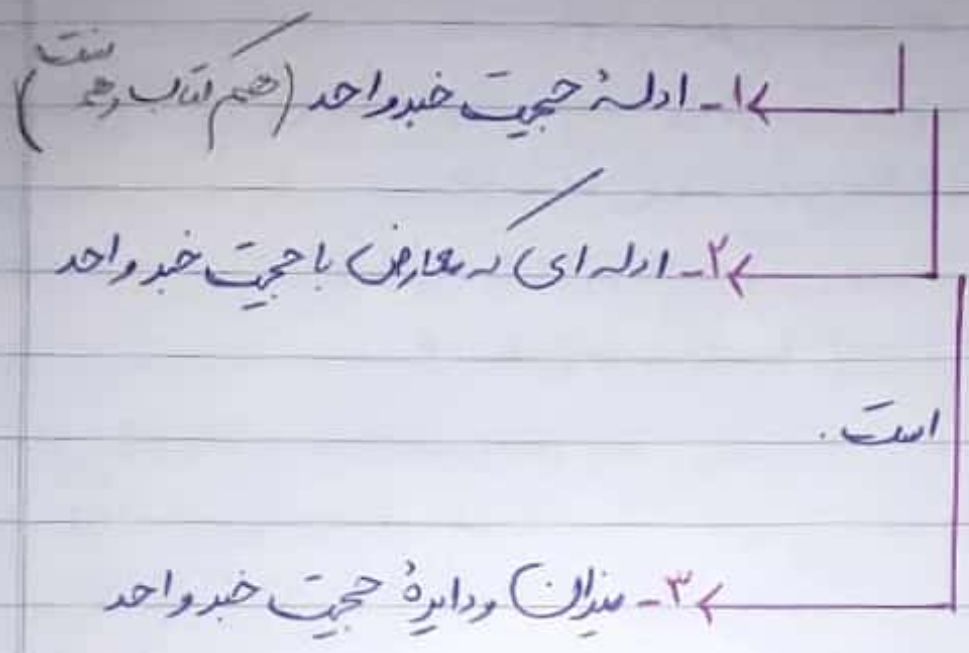 ۱- ادلهٔ حجیت خبر واحد (هم کتاب و هم سنت)
۲- ادله ای که معارض با حجیت خبر واحد
است.
۳- میزان و دایرهٔ حجیت خبر واحد